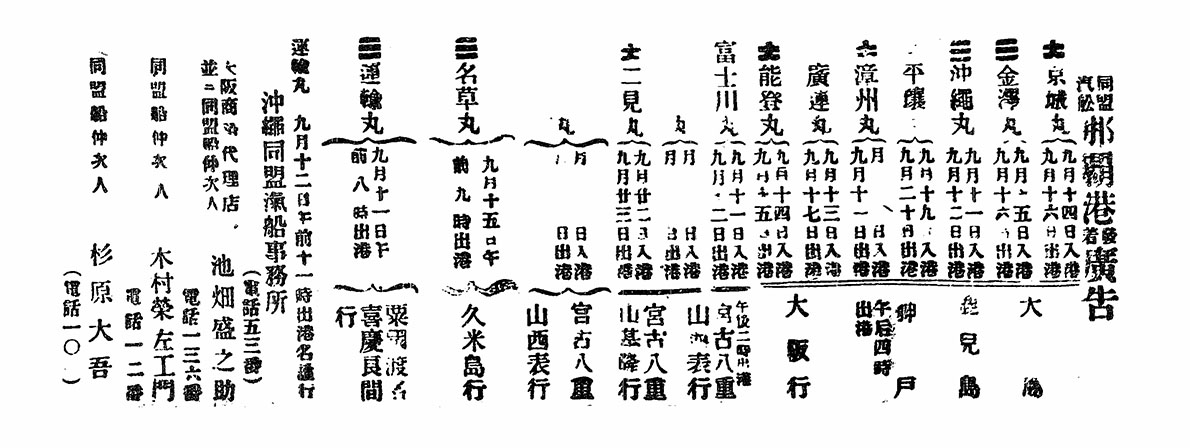 同盟汽船
那覇港發着廣告
京城丸
九月十四日入港
九月十六日出港
金澤丸
九月十五日入港
九月十六日出港
沖繩丸
九月十一日入港
九月十二日出港
平壤丸
九月十九日入港
九月二十日出港
漳州丸
月 日入港
九月十一日出港
廣運丸
九月十三日入港
九月十七日出港
能登丸
九月十四日入港
九月十五日出港
大
鹿兒島
神戸
午后四時
出港
大阪行
富士川丸
九月十一日入港
九月十二日出港
午後二時出港
宮古八重
丸
月 日入港
月 日出港
山 表行
二見丸
九月廿二日入港
九月廿三日出港
宮古八重
山基隆行
丸
月 日入港
日出港
宮古八重
山西表行
名草丸
九月十五日午
前九時出港
久米島行
運輸丸
九月十一日午
前八時出港
粟 渡名
喜慶良間
行
運輸丸 九月十二日午前十一時出港名護行
沖繩同盟滊船事務所
(電話五三番)
大阪商船代理店
並ニ同盟船仲次人
池畑盛之助
電話一三六番
同盟船仲次人 木村榮左工門
電話一二番
同盟船仲次人 杉原大吾
(電話一〇 )